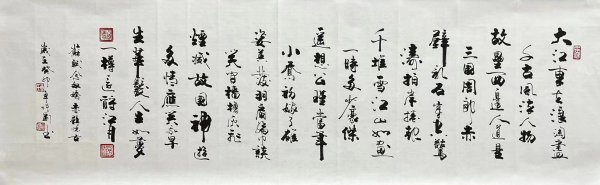 大江東去浪淘盡
千古風流人物
故壘西邊人道是
三國周郎赤
壁亂石穿空驚
濤拍岸捲起
千堆雪江山如畫
一時多少豪傑
遙想公瑾當年
小喬初嫁了雄
姿英發羽扇綸巾談
笑間檣櫓灰飛
煙滅故國神遊
多情應笑我早
生華髮人生如夢
一樽還酹江月
蘇軾念奴嬌赤壁懷古
歲在癸卯